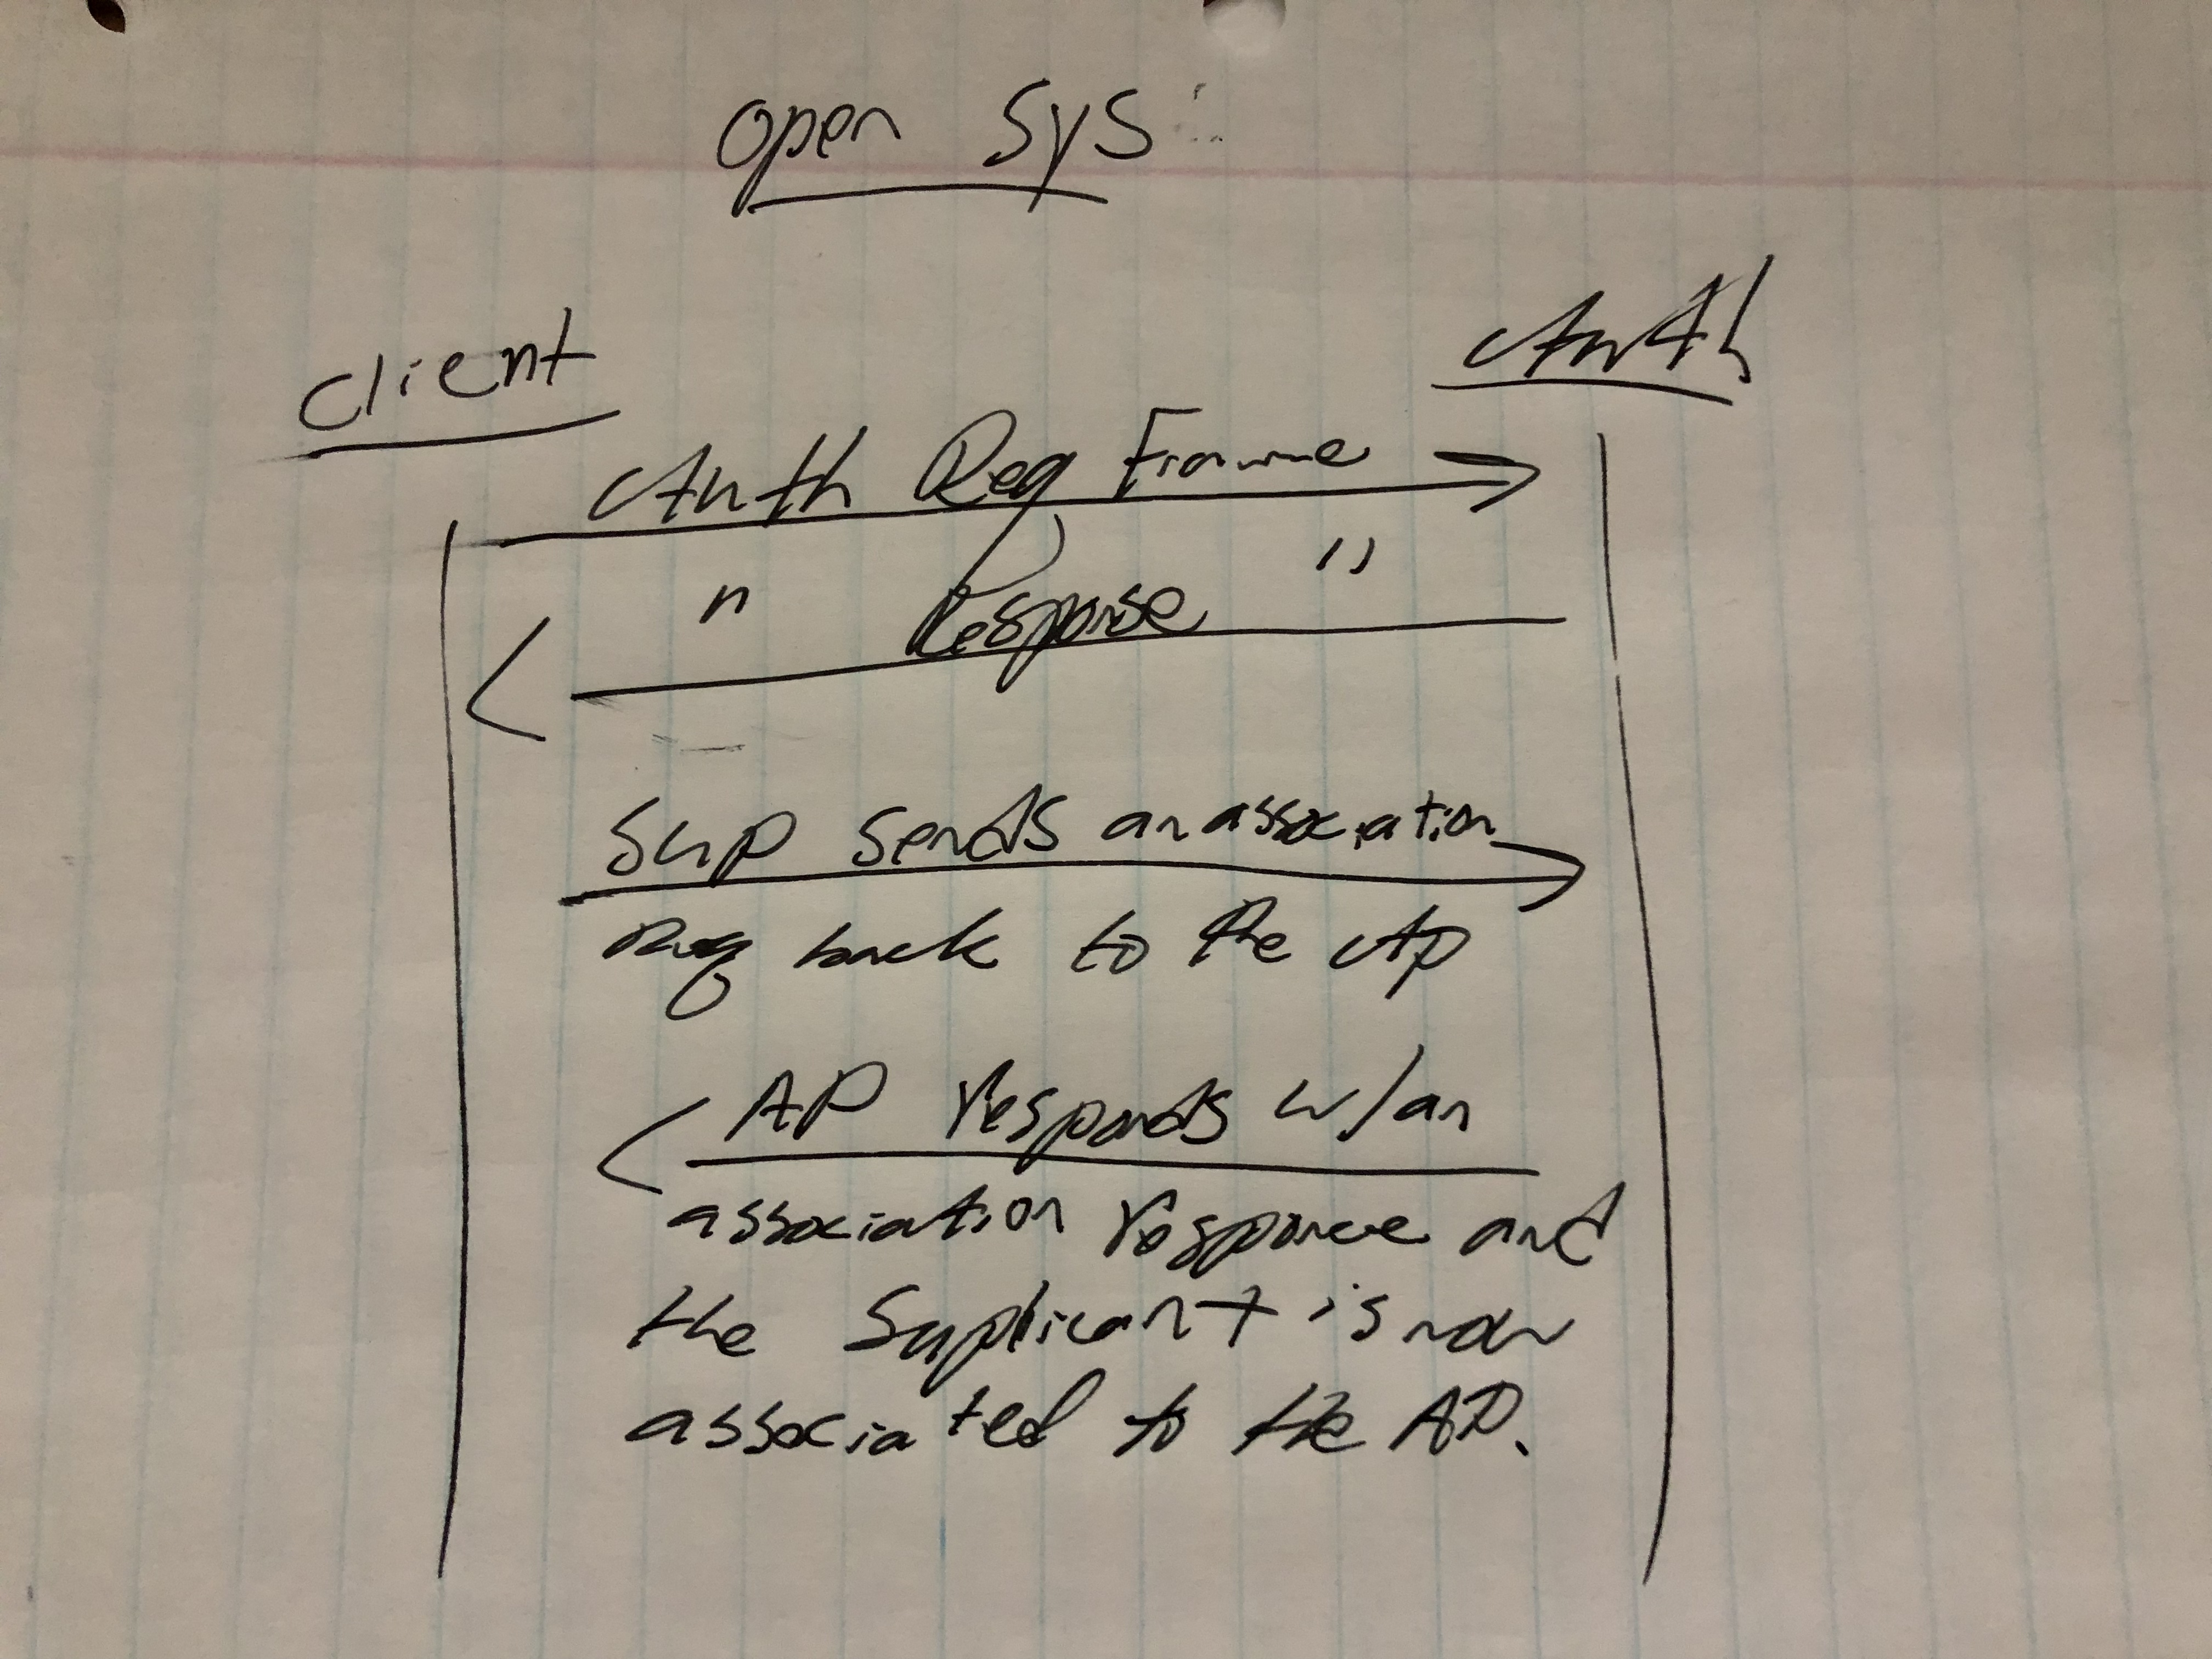 open sys
client
Auth
Auth Req Frame
" Response "
Sup sends an association
Req back to the Ap
AP responds w/an
association response and
the Suplicant is now
associated to the AP.